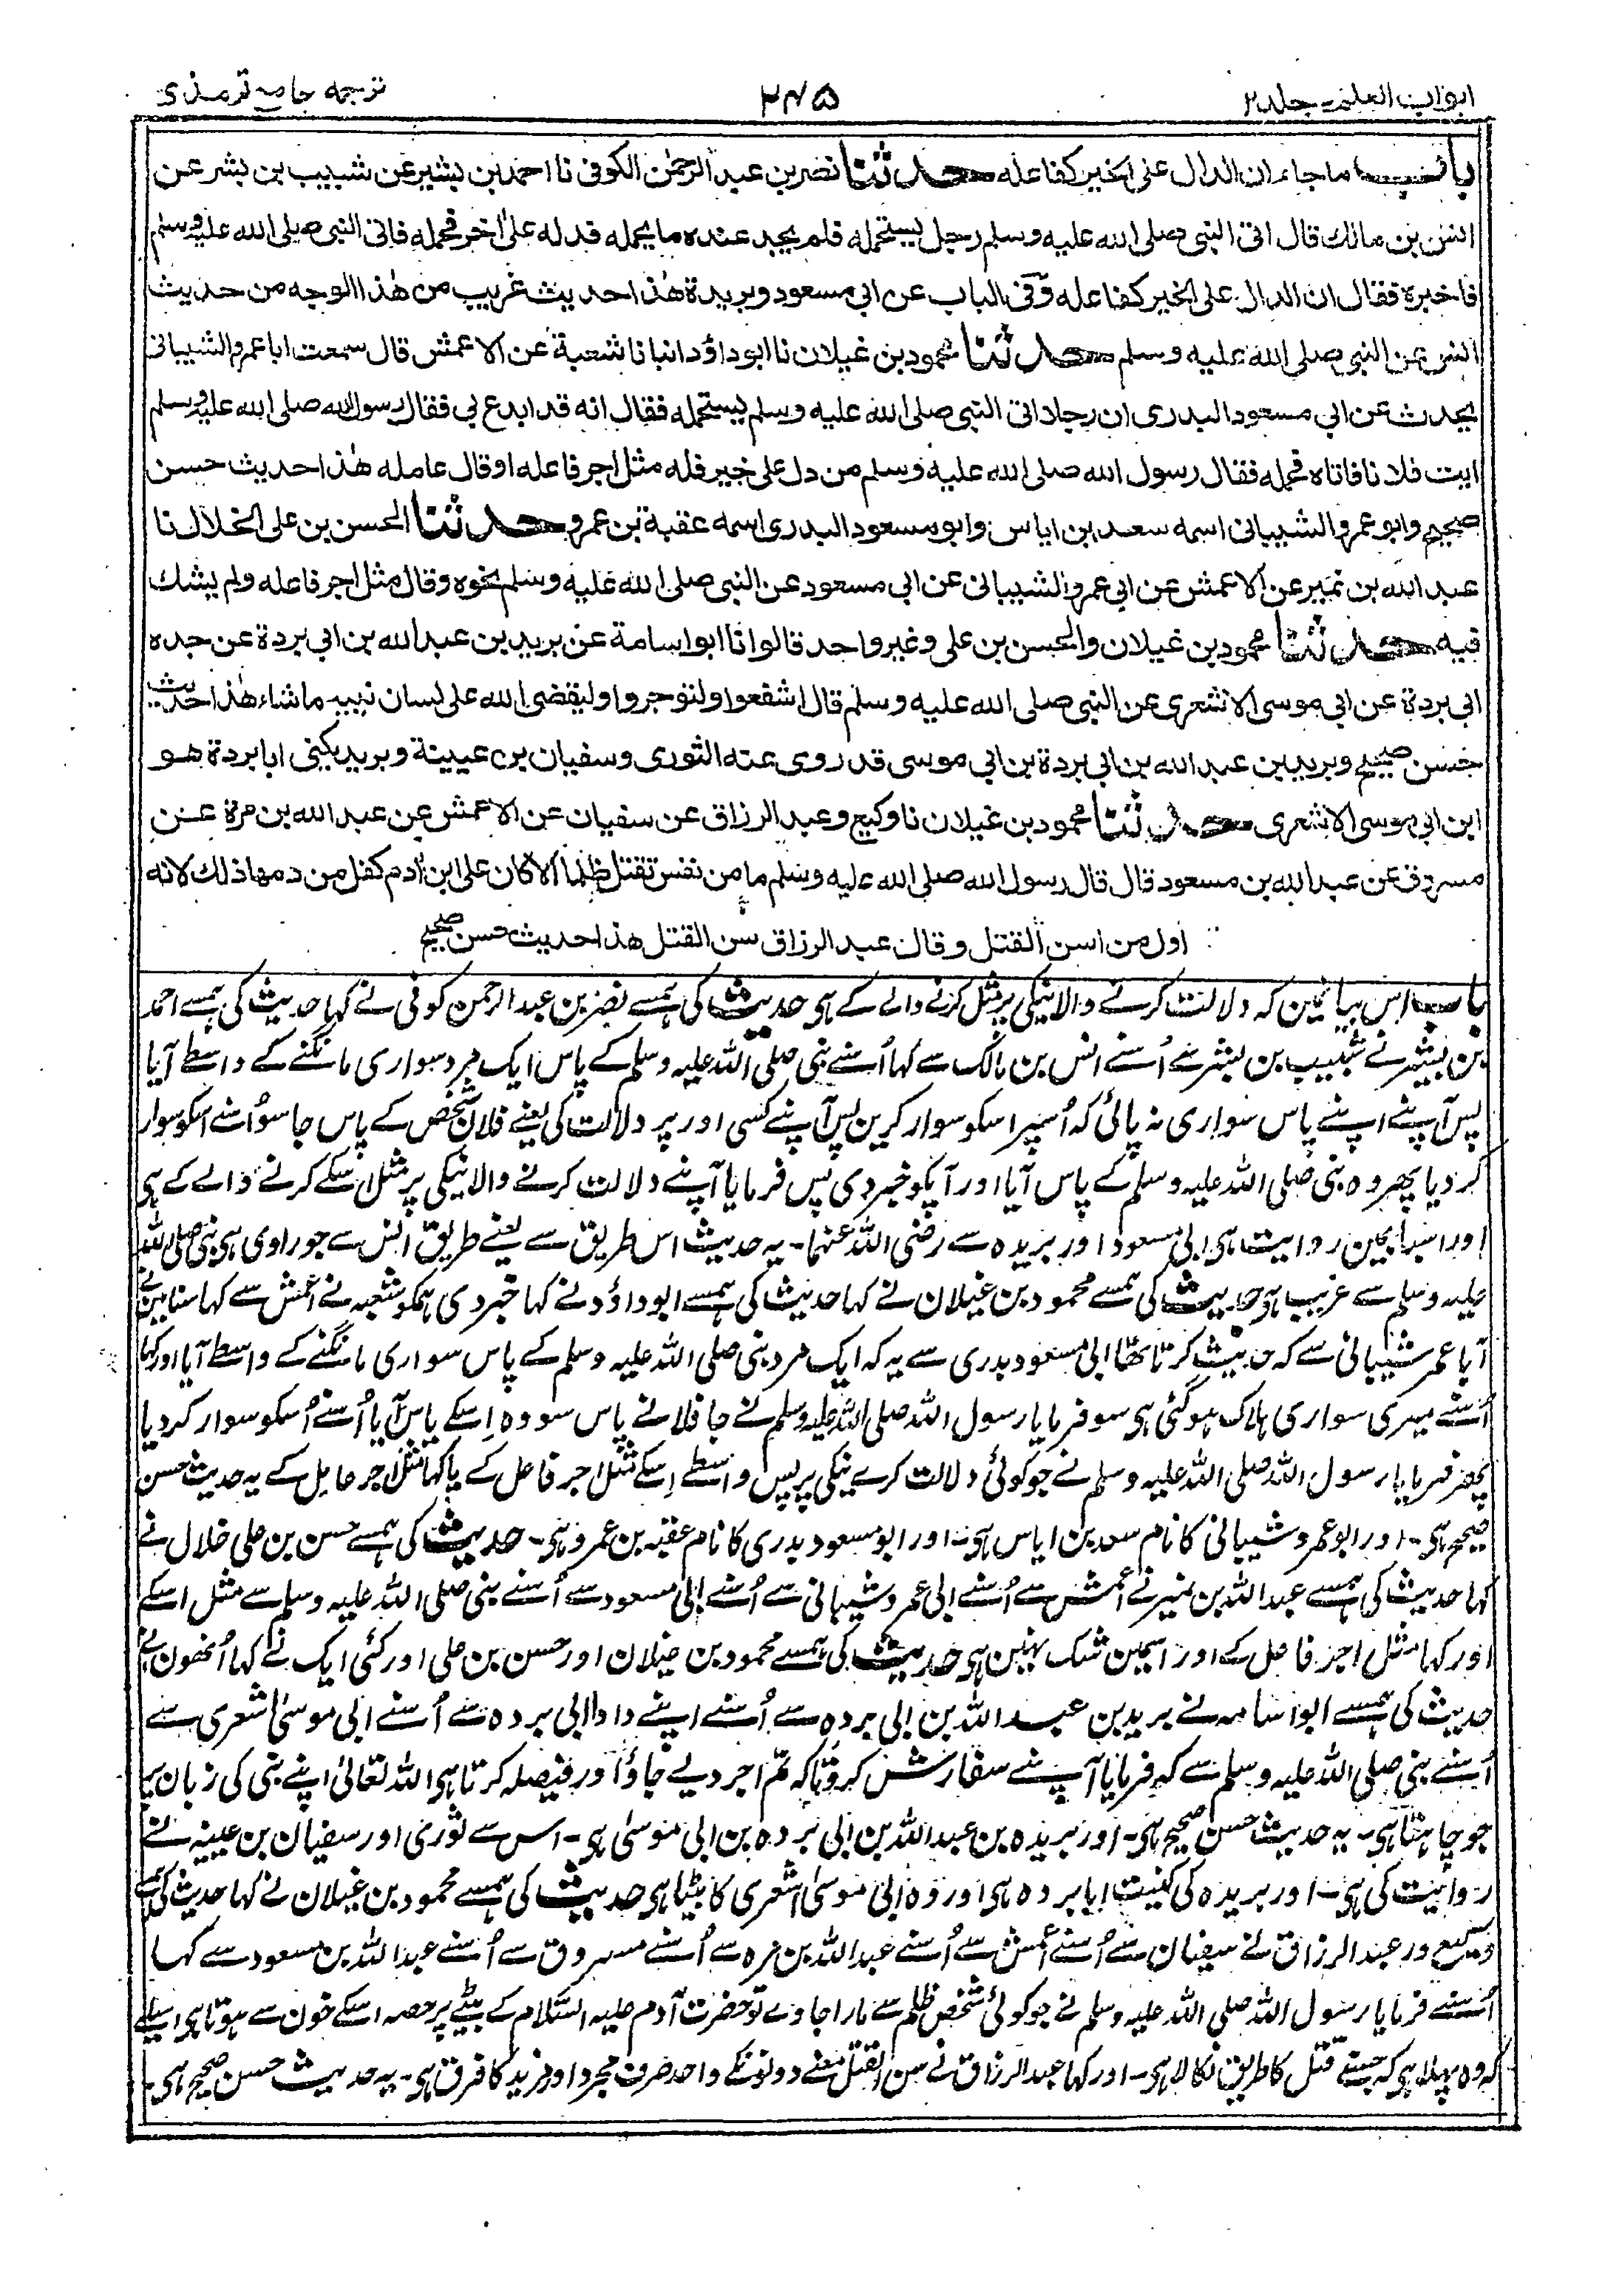 ابواب العلم۔ جلد ۲
۲۴۵
ترجمہ جامع ترمذی
باب ما جاء ان الدال علی الخیر کفاعلہ حدثنا نصر بن عبد الرحمٰن الکوفی نا احمد بن بشیر عن شبیب بن بشر عن
انس بن مالک قال اتی النبی صلی اللہ علیہ وسلم رجل یستحملہ فلم یجد عندہ ما یحملہ فدلہ علیٰ اٰخر فحملہ فاتی النبی صلی اللہ علیہ وسلم
فاخبرہ فقال ان الدال علی الخیر کفاعلہ وفی الباب عن ابی مسعود وبریدۃ ھٰذا حدیث غریب من ھٰذا الوجہ من حدیث
انس عن النبی صلی اللہ علیہ وسلم حدثنا محمود بن غیلان نا ابو داؤد انبانا شعبۃ عن الاعمش قال سمعت ابا عمرو الشیبانی
یحدث عن ابی مسعود البدری ان رجلا اتی النبی صلی اللہ علیہ وسلم یستحملہ فقال انہ قد ابدع بی فقال رسول اللہ صلی اللہ علیہ وسلم
ایت فلانا فاتاہ فحملہ فقال رسول اللہ صلی اللہ علیہ وسلم من دل علی خیر فلہ مثل اجر فاعلہ او قال عاملہ ھٰذا حدیث حسن
صحیح وابو عمرو الشیبانی اسمہ سعد بن ایاس وابو مسعود البدری اسمہ عقبۃ بن عمرو حدثنا الحسن بن علی الخلال نا
عبد اللہ بن نمیر عن الاعمش عن ابی عمرو الشیبانی عن ابی مسعود عن النبی صلی اللہ علیہ وسلم نحوہ وقال مثل اجر فاعلہ ولم یشک
فیہ حدثنا محمود بن غیلان والحسن بن علی وغیر واحد قالوا نا ابو اسامۃ عن برید بن عبد اللہ بن ابی بردۃ عن جدہ
ابی بردۃ عن ابی موسی الاشعری عن النبی صلی اللہ علیہ وسلم قال اشفعوا ولتوجروا ولیقضی اللہ علی لسان نبیہ ما شاء ھٰذا حدیث
حسن صحیح وبرید بن عبد اللہ بن ابی بردۃ بن ابی موسی قد روی عنہ الثوری وسفیان بن عیینۃ وبرید یکنی ابا بردۃ ھو
ابن ابی موسی الاشعری حدثنا محمود بن غیلان نا وکیع وعبد الرزاق عن سفیان عن الاعمش عن عبد اللہ بن مرۃ عن
مسروق عن عبد اللہ بن مسعود قال قال رسول اللہ صلی اللہ علیہ وسلم ما من نفس تقتل ظلما الا کان علی ابن اٰدم کفل من دمھا ذلک لانہ
اول من اسن القتل وقال عبد الرزاق سن القتل ھذا حدیث حسن صحیح
باب اس بیانمین کہ دلالت کرنے والا نیکی پر مثل کرنے والے کے ہی حدیث کی ہمسے نصر بن عبد الرحمن کوفی نے کہا حدیث کی ہمسے احمد
بن بشیر نے شبیب بن بشر سے اُسنے انس بن مالک سے کہا اُسنے نبی صلی اللہ علیہ وسلم کے پاس ایک مرد سواری مانگنے کے واسطے آیا
پس آپنے اپنے پاس سواری نہ پائی کہ اُسپر اسکو سوار کرین پس آپنے کسی اور پر دلالت کی یعنے فلان شخص کے پاس جا سو اُسنے اسکو سوار
کر دیا پھر وہ نبی صلی اللہ علیہ وسلم کے پاس آیا اور آپکو خبر دی پس فرمایا آپنے دلالت کرنے والا نیکی پر مثل اسکے کرنے والے کے ہی
اور اس بابمین روایت ہی ابی مسعود اور بریدہ سے رضی اللہ عنہما۔ یہ حدیث اس طریق سے یعنے طریق انس سے جو راوی ہی نبی صلی اللہ
علیہ وسلم سے غریب ہی حدیث کی ہمسے محمود بن غیلان نے کہا حدیث کی ہمسے ابو داؤد نے کہا خبر دی ہمکو شعبہ نے اعمش سے کہا سنا مین نے
ابا عمر شیبانی سے کہ حدیث کرتا تھا ابی مسعود بدری سے یہ کہ ایک مرد نبی صلی اللہ علیہ وسلم کے پاس سواری مانگنے کے واسطے آیا اور کہا
اُسنے میری سواری ہلاک ہو گئی ہی سو فرمایا رسول اللہ صلی اللہ علیہ وسلم نے جا فلانے پاس سو وہ اِسکے پاس آیا اُسنے اُسکو سوار کر دیا
پھر فرمایا رسول اللہ صلی اللہ علیہ وسلم نے جو کوئی دلالت کرے نیکی پر پس واسطے اِسکے مثل اجر فاعل کے یا کہا مثل اجر عامل کے یہ حدیث حسن
صحیح ہی۔ اور ابو عمرو شیبانی کا نام سعد بن ایاس ہی۔ اور ابو مسعود بدری کا نام عقبہ بن عمرو ہی۔ حدیث کی ہمسے حسن بن علی خلال نے
کہا حدیث کی ہمسے عبد اللہ بن نمیر نے اعمش سے اُسنے ابی عمرو شیبانی سے اُسنے ابی مسعود سے اُسنے نبی صلی اللہ علیہ وسلم سے مثل اسکے
اور کہا مثل اجر فاعل کے اور اسمین شک نہین ہی حدیث کی ہمسے محمود بن غیلان اور حسن بن علی اور کئی ایک نے کہا اُنھون نے
حدیث کی ہمسے ابو اسامہ نے برید بن عبد اللہ بن ابی بردہ سے اُسنے اپنے دادا ابی بردہ سے اُسنے ابی موسیٰ اشعری سے
اُسنے نبی صلی اللہ علیہ وسلم سے کہ فرمایا آپنے سفارش کرو تاکہ تم اجر دیے جاؤ اور فیصلہ کرتا ہی اللہ تعالیٰ اپنے نبی کی زبان پر
جو چاہتا ہی۔ یہ حدیث حسن صحیح ہی۔ اور بریدہ بن عبد اللہ بن ابی بردہ بن ابی موسیٰ ہی۔ اس سے ثوری اور سفیان بن عیینہ نے
روایت کی ہی۔ اور بریدہ کی کنیت ابا بردہ ہی اور وہ ابی موسیٰ اشعری کا بیٹا ہی حدیث کی ہمسے محمود بن غیلان نے کہا حدیث کی ہمسے
وکیع ور عبد الرزاق نے سفیان سے اُسنے اعمش سے اُسنے عبد اللہ بن مرہ سے اُسنے مسروق سے اُسنے عبد اللہ بن مسعود سے کہا
اُسنے فرمایا رسول اللہ صلی اللہ علیہ وسلم نے جو کوئی شخص ظلم سے مارا جاوے تو حضرت آدم علیہ السلام کے بیٹے پر حصہ اسکے خون سے ہوتا ہی اسلیے
کہ وہ پہلا ہی کہ جسنے قتل کا طریق نکالا ہی۔ اور کہا عبد الرزاق نے سن القتل معنے دونونکے واحد صرف مجرد اور مزید کا فرق ہی۔ یہ حدیث حسن صحیح ہی۔